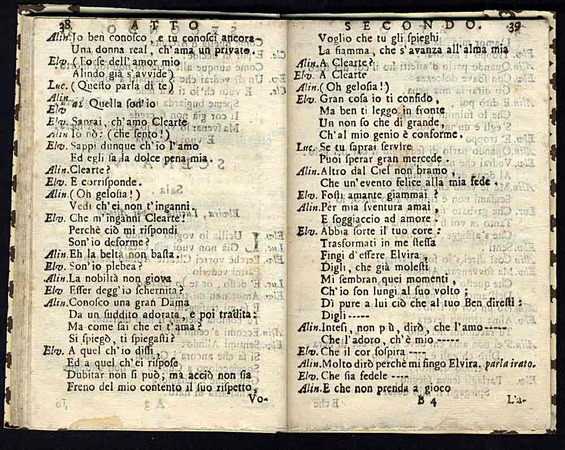 38 ATTO
Alin. Io ben conosco, e tu conosci ancora
Una donna real, ch'ama un privato.
Elv. (Io se dell'amor mio
Alindo già s'avvide)
Luc. (Questo parla di te)
Alin.
a2 Quella son'io
Elv.
Elv. Saprai, ch'amo Clearte.
Alin. Io nò: (che sento!)
Elv. Sappi dunque ch'io l'amo
Ed egli sa la dolce pena mia.
Alin. Clearte?
Elv. E corrisponde.
Alin. (Oh gelosia!)
Vedi ch'ei non t'inganni.
Elv. Che m'inganni Clearte!
Perchè ciò mi rispondi
Son'io deforme?
Alin. Eh la beltà non basta.
Elv. Son'io plebea?
Alin. La nobiltà non giova
Elv. Esser degg'io schernita?
Alin. Conosco una gran Dama
Da un suddito adorata, e poi tradita:
Ma come sai che ei t'ama?
Si spiegò, ti spiegasti?
Elv. A quel ch'io dissi
Ed a quel ch'ei rispose
Dubitar non si può, ma acciò non sia
Freno del mio contento il suo rispetto,
Vo-
SECONDO. 39
Voglio che tu gli spieghi
La fiamma, che s'avanza all'alma mia
Alin. A Clearte?
Elv. A Clearte
Alin. (Oh gelosia!)
Elv. Gran cosa io ti confido,
Ma ben ti leggo in fronte
Un non so che di grande,
Ch'al mio genio è conforme.
Luc. Se tu saprai servire
Puoi sperar gran mercede.
Alin. Altro dal Ciel non bramo,
Che un'evento felice alla mia fede.
Elv. Fosti amante giammai?
Alin. Per mia sventura amai
E soggiaccio ad amore:
Elv. Abbia sorte il tuo core:
Trasformati in me stessa
Fingi d'essere Elvira,
Digli, che già molesti
Mi sembran quei momenti,
Ch'io son lungi al suo volto;
Dì pure a lui ciò che al tuo Ben diresti:
Digli-----
Alin. Intesi, non più, dirò, che l'amo-----
Che l'adoro, ch'è mio-----
Elv. Che il cor sospira----
Alin. Molto dirò perchè mi fingo Elvira, parla irato.
Elv. Che sia fedele----
Alin. E che non prenda a gioco
B 4 L'a-